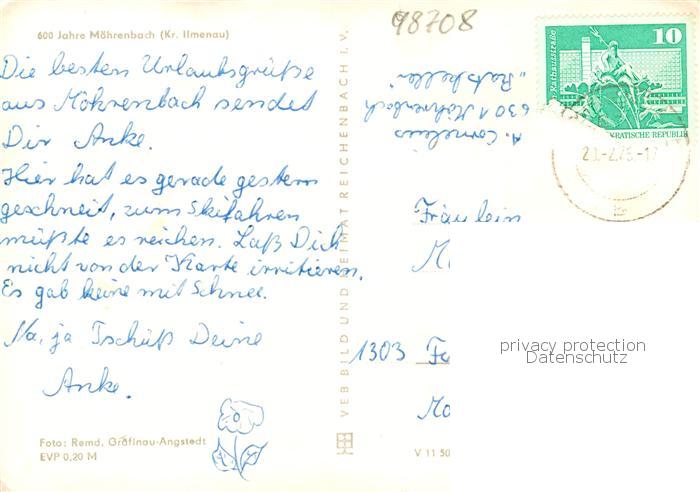 600 Jahre Möhrenbach (Kr. Ilmenau)
Die besten Urlaubsgrüße
aus Möhrenbach sendet
Dir Anke.
Hier hat es gerade gestern
geschneit, zum Skifahren
müßte es reichen. Laß Dich
nicht von der Karte irritieren.
Es gab keine mit Schnee.
Na, ja Tschüß Deine
Anke.
Foto: Remd, Gräfinau-Angstedt
EVP 0,20 M
VEB BILD UND HEIMAT REICHENBACH I. V.
98708
A. Cornelius
6301 Möhrenbach
"Ratskeller"
Rathausstraße
10
KRATISCHE REPUBLIK
Fräulein
M
1303 Fa
Mo
V 11 50
privacy protection
Datenschutz